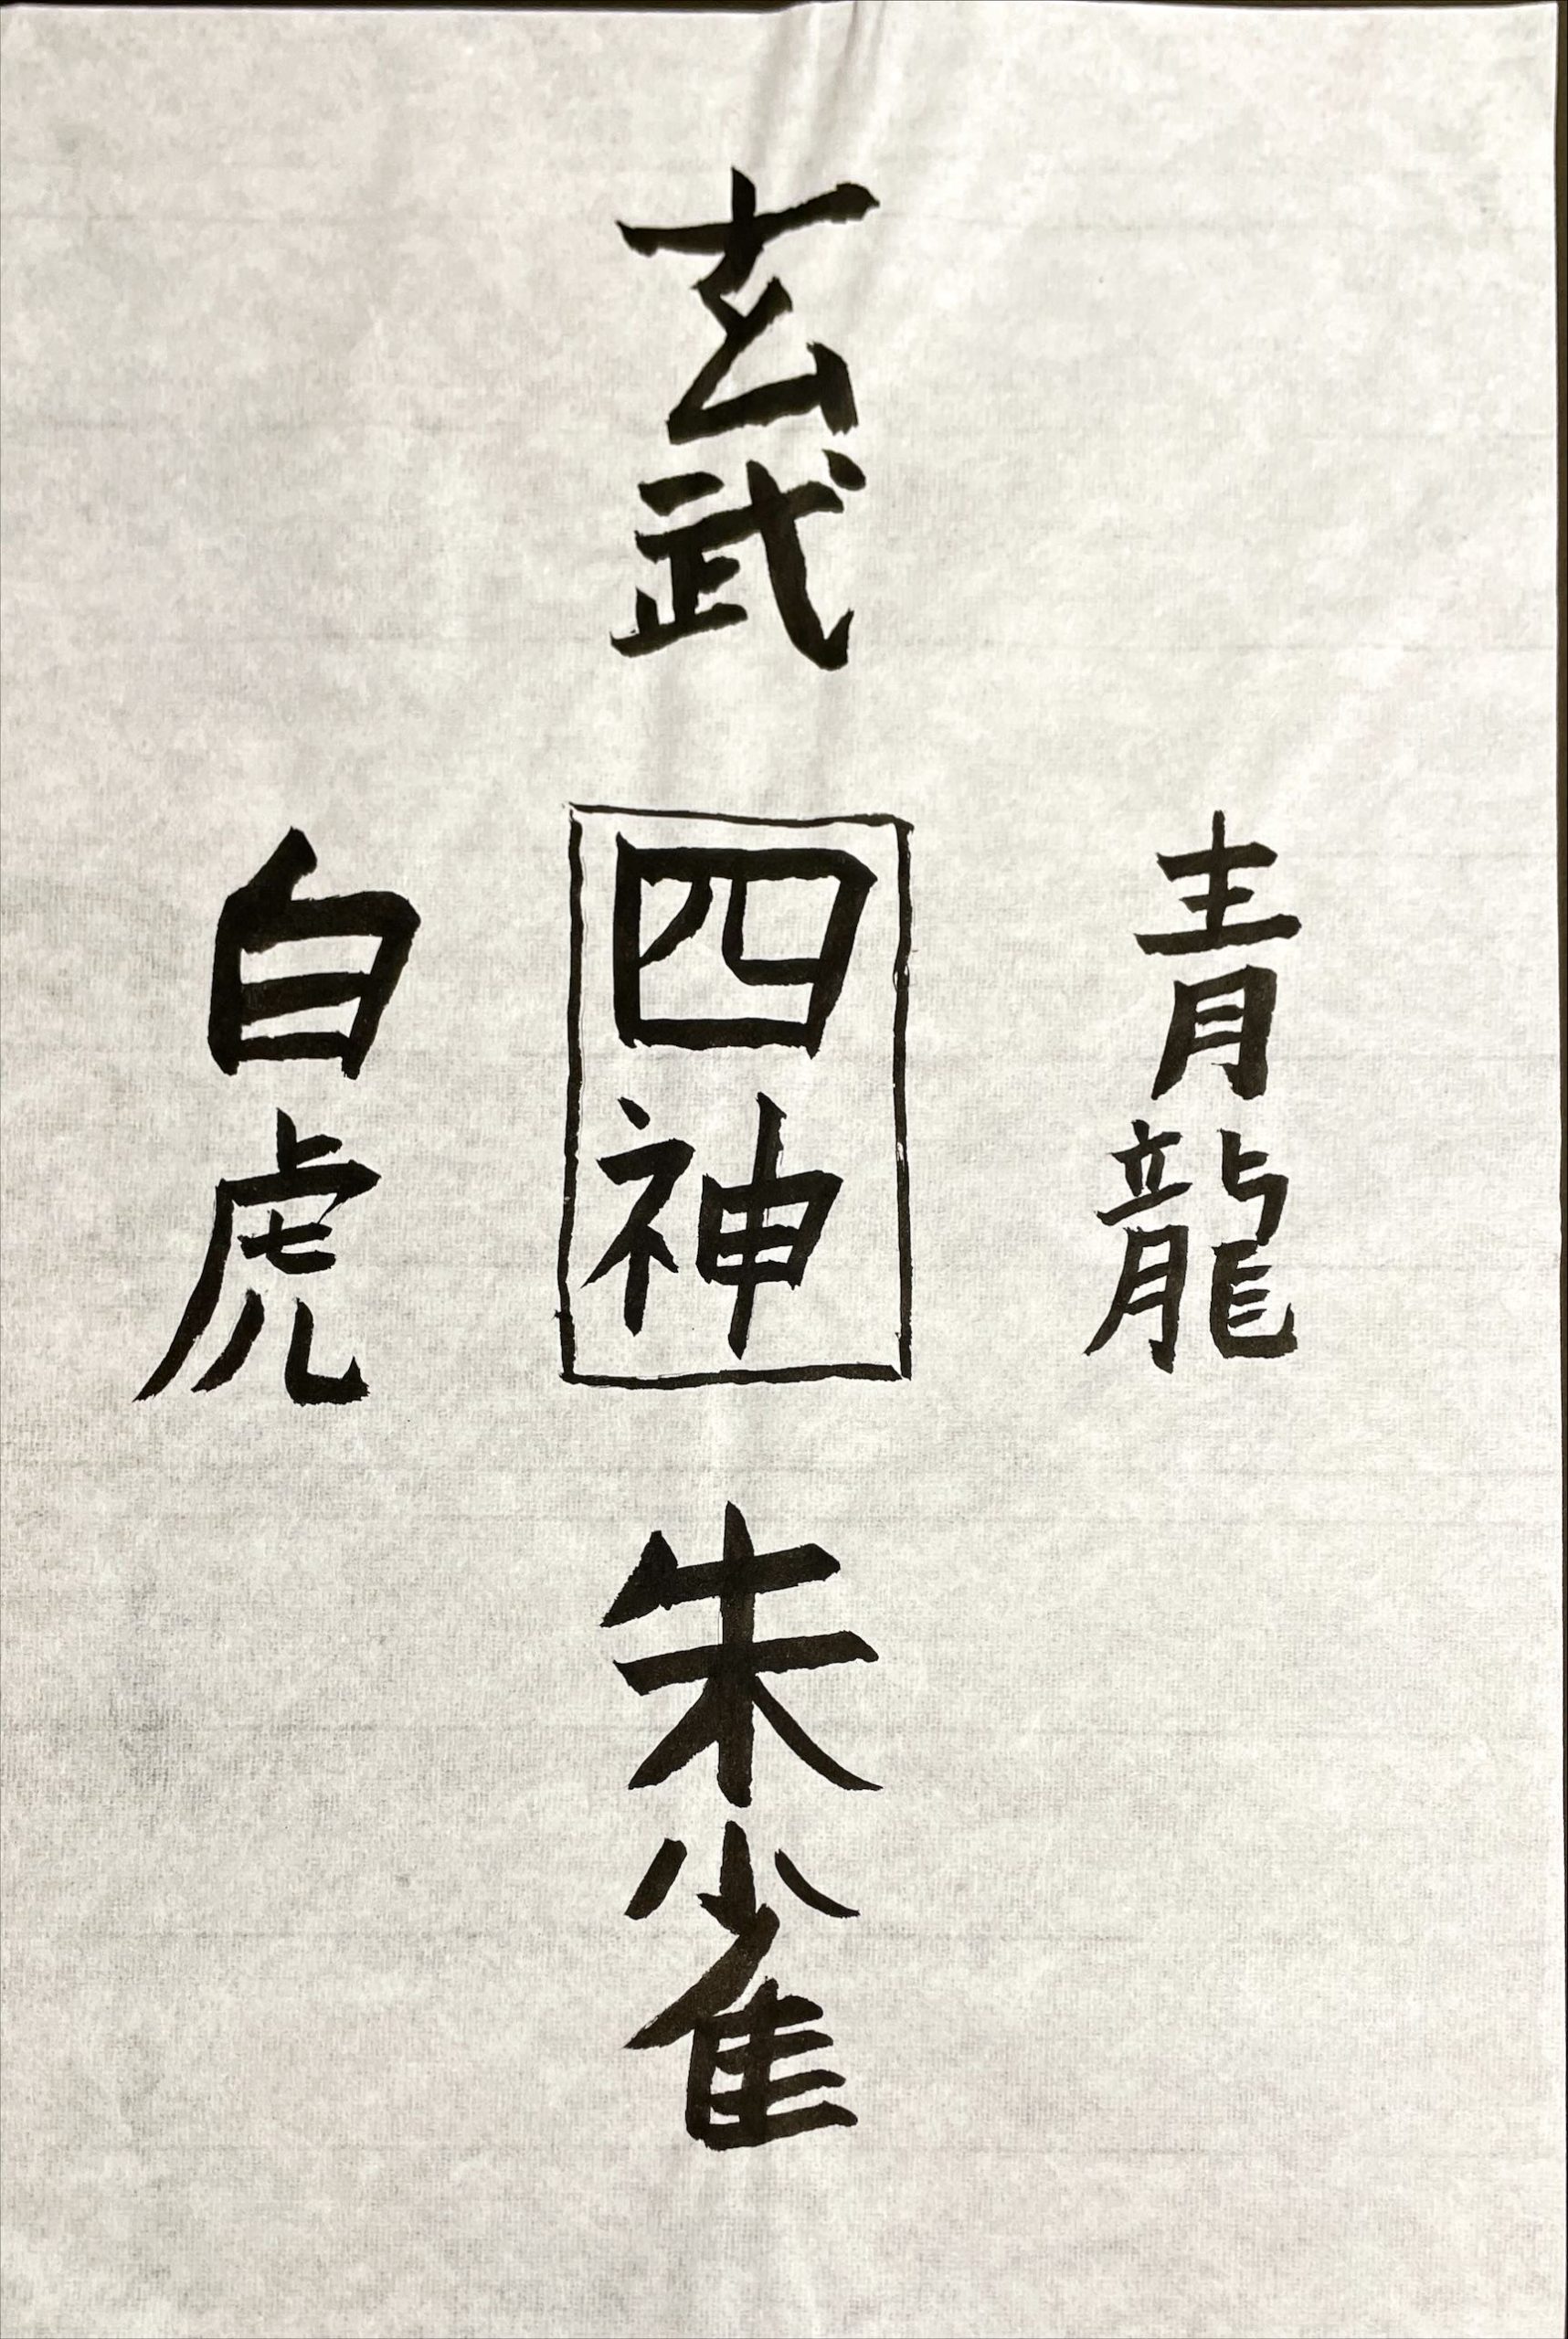 玄武
青龍
四神
白虎
朱雀